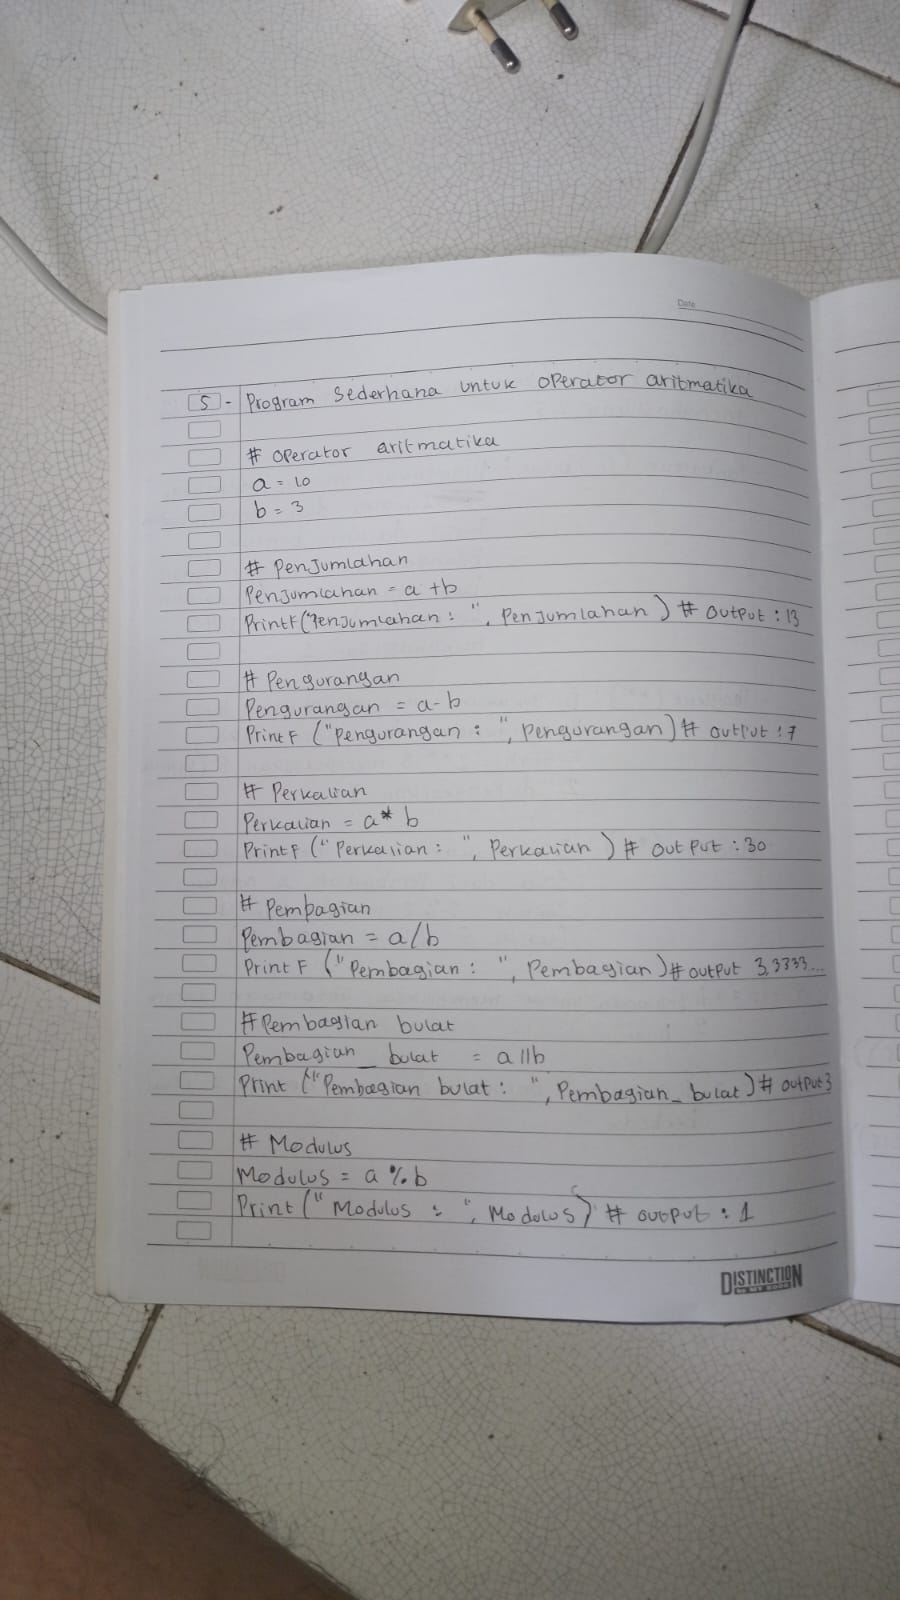 Date
5 - Program Sederhana untuk operator aritmatika
# operator aritmatika
a = 10
b = 3
# Penjumlahan
Penjumlahan = a + b
PrintF("Penjumlahan : ", Penjumlahan) # output : 13
# Pengurangan
Pengurangan = a - b
PrintF ("Pengurangan : ", Pengurangan) # output : 7
# Perkalian
Perkalian = a * b
PrintF ("Perkalian : ", Perkalian) # output : 30
# Pembagian
Pembagian = a/b
PrintF ("Pembagian : ", Pembagian) # output 3,3333...
# Pembagian bulat
Pembagian_bulat = a//b
Print ("Pembagian bulat : ", Pembagian_bulat) # output 3
# Modulus
Modulus = a % b
Print ("Modulus : ", Modulus) # output : 1
DISTINCTION